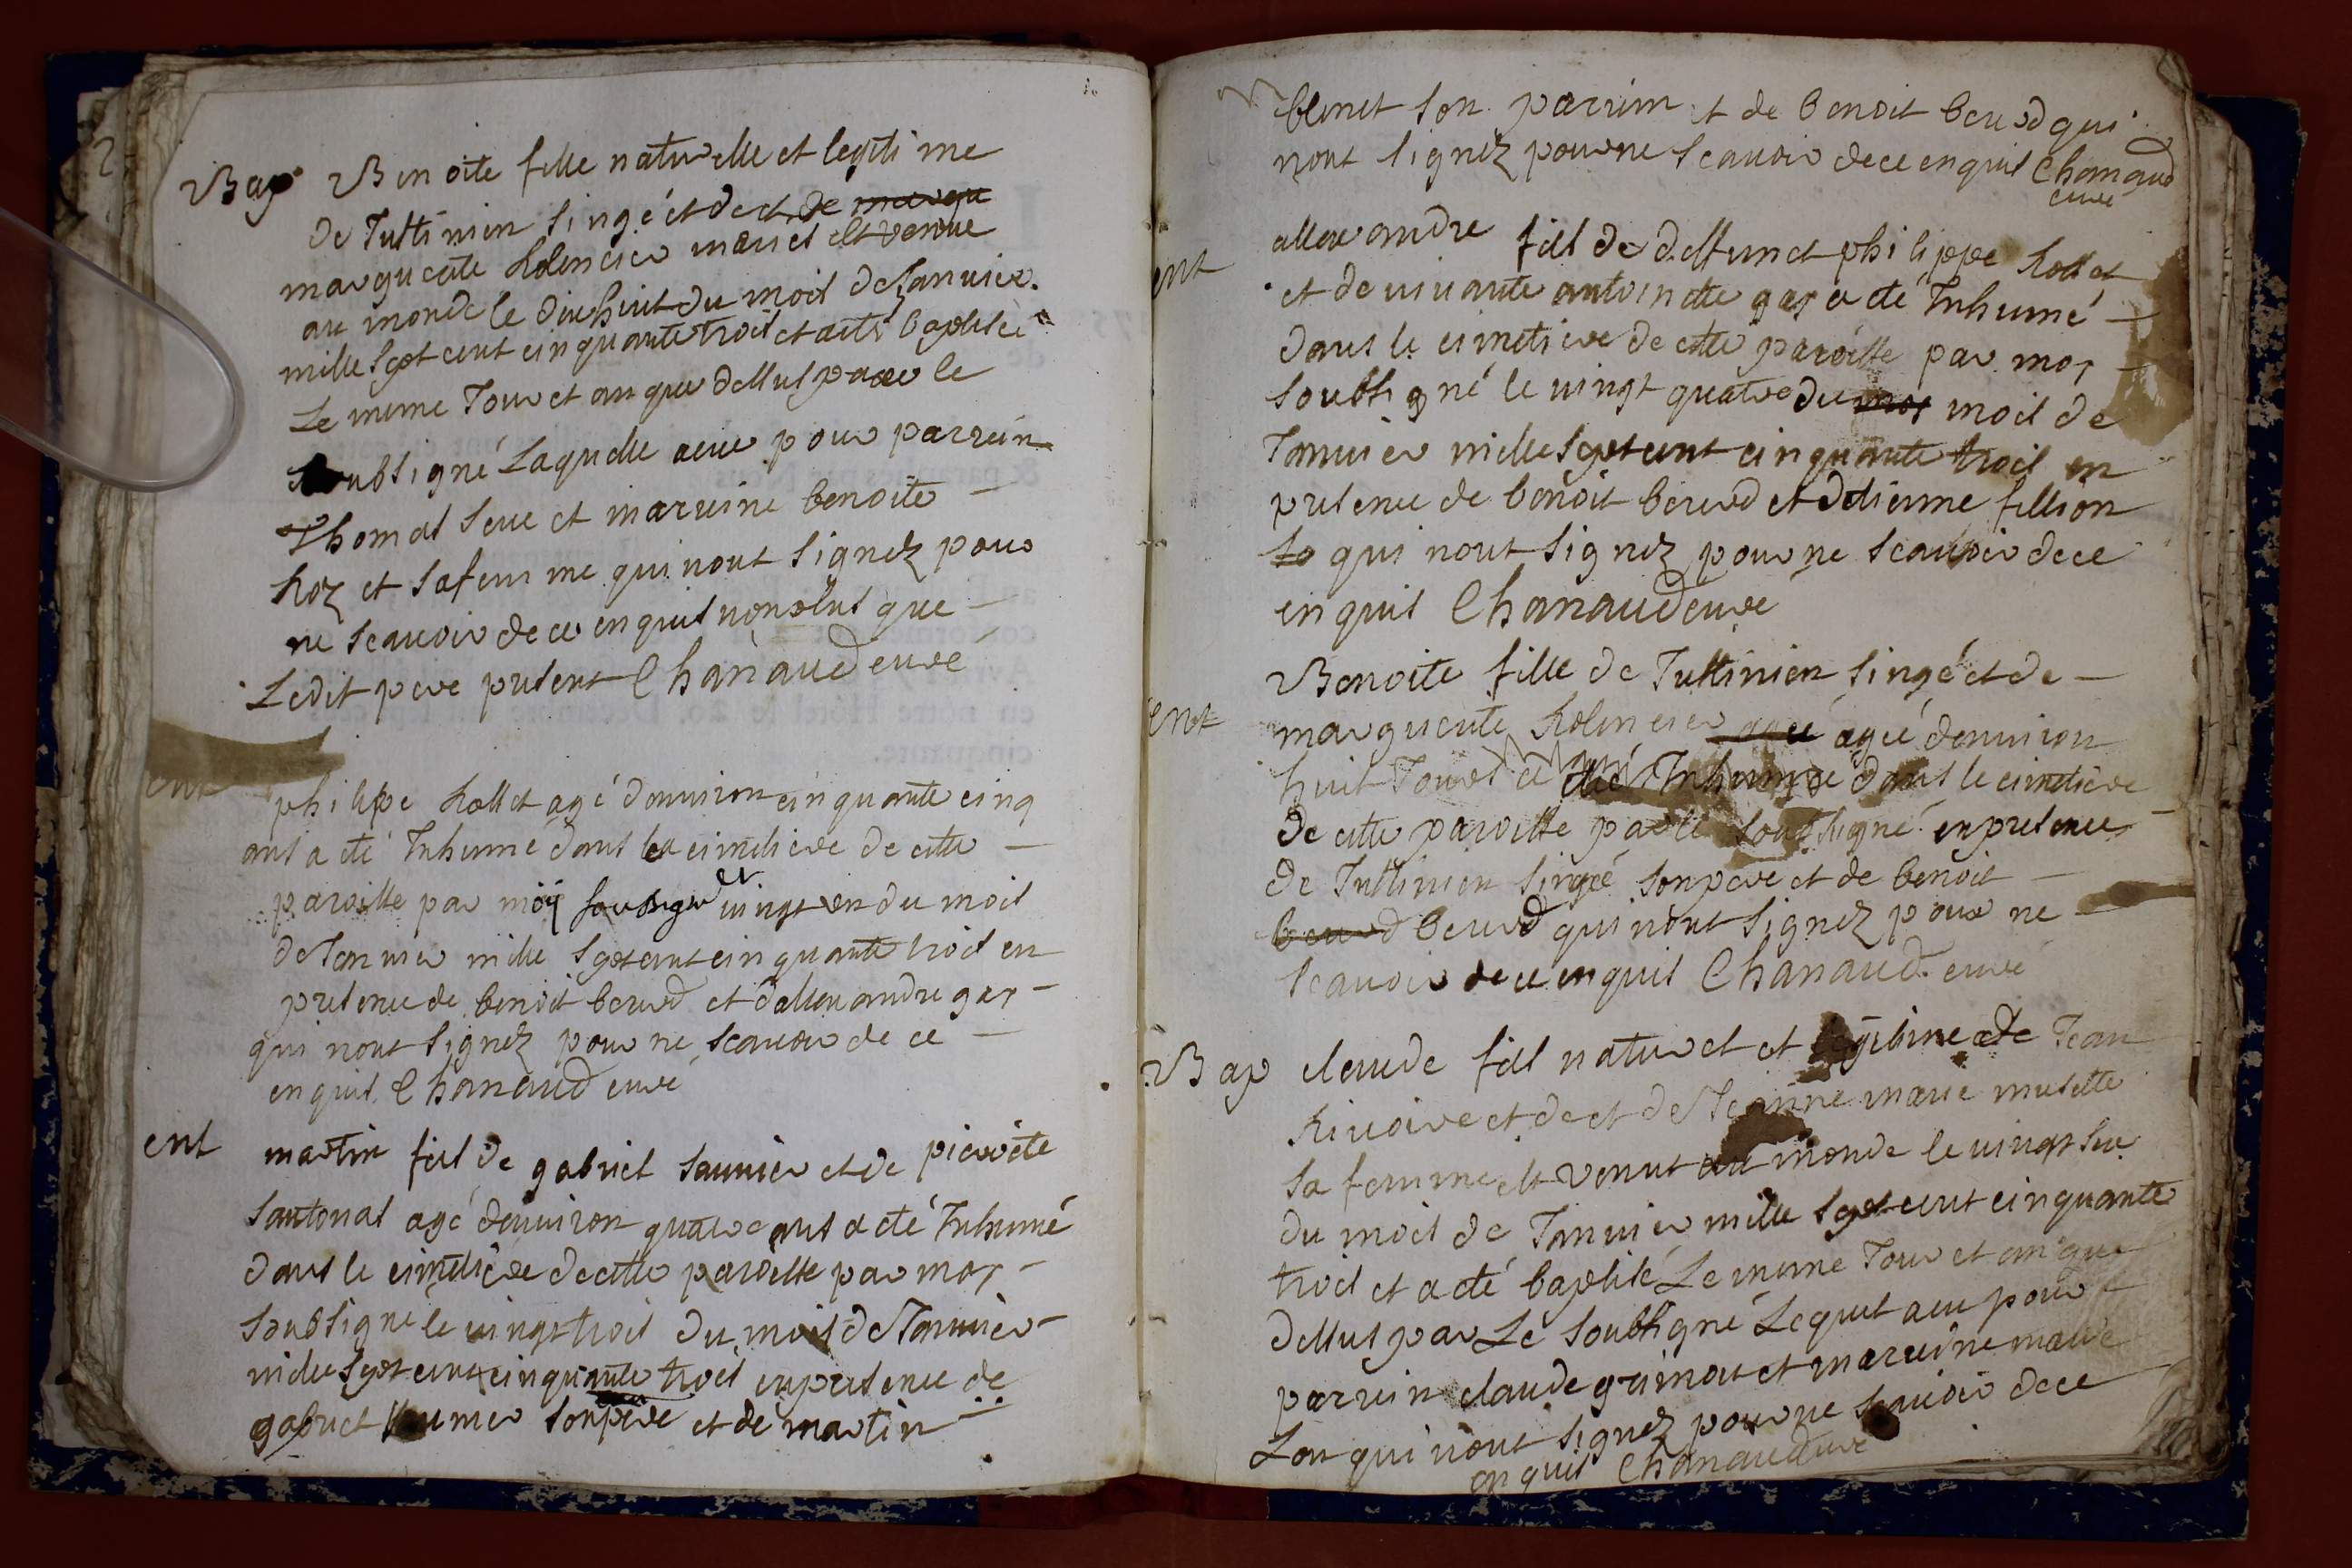 Bap Benoite fille naturelle et legitime
de Justinien singé et de et de margu
marguerite Rolencier mariés est venue
au monde le dixhuit du mois de Janvier
mille sept cent cinquante trois et a été baptisée
Le meme Jour et an que dessus par le
soubsigné Laquelle a eue pour parrein
Thomas seue et marreine benoite
Roy et sa femme qui nont signez pour
ne scauoir de ce enquis non plus que
Ledit pere present Chanaud curé
ent philipe Rollet agé denuiron cinquante cinq
ans a été Inhumé dans le cimetiere de cette
paroisse par moÿ soussigné et vingt un du mois
de Januier mille sept cent cinquante trois en
presence de benoit berud et dallexandre gay
qui nont signez pour ne scauoir de ce
enquis Chanaud curé
ent martin fils de gabriel saunier et de pierrete
santonas agé denuiron quatre ans a été Inhumé
dans le cimetiere de cette paroisse par moy
soubsigné le uingt trois du mois de Januier
mille sept cent cinquante trois en presence de
gabriel saunier son pere et de martin
blenet son parrin et de benoit berud qui
nont signez pour ne scauoir de ce enquis Chanaud
curé
ent allexandre fils de deffunct philippe Rollet
et de uiuante antoinette gay a été Inhumé
dans le cimetiere de cette paroisse par moy
soubsigné le uingt quatre du moy mois de
Januier mille sept cent cinquante trois en
presence de benoit berud et detienne fillion
so qui nont signez pour ne scauoir de ce
enquis Chanaud curé
Benoite fille de Justinien singé et de
ent marguerite Rolencier agée agée denuiron
huit Jours a été Inhumée dans le cimetiere
de cette paroisse par le soubsigné en presence
de Justinien singé son pere et de benoit
berud berud qui nont signez pour ne
scauoir de ce enquis Chanaud curé
Bap claude fils naturel et legitime de Jean
Riuoire et de et de Jeanne marie musette
sa femme est venut au monde le uingt six
du mois de Januier mille sept cent cinquante
trois et a été baptisé Le meme Jour et an que
dessus par Le soubsigné Lequel a eu pour
parrein claude grimot et marreine marie
Lon qui nont signez pour ne scauoir de ce
enquis Chanaud curé